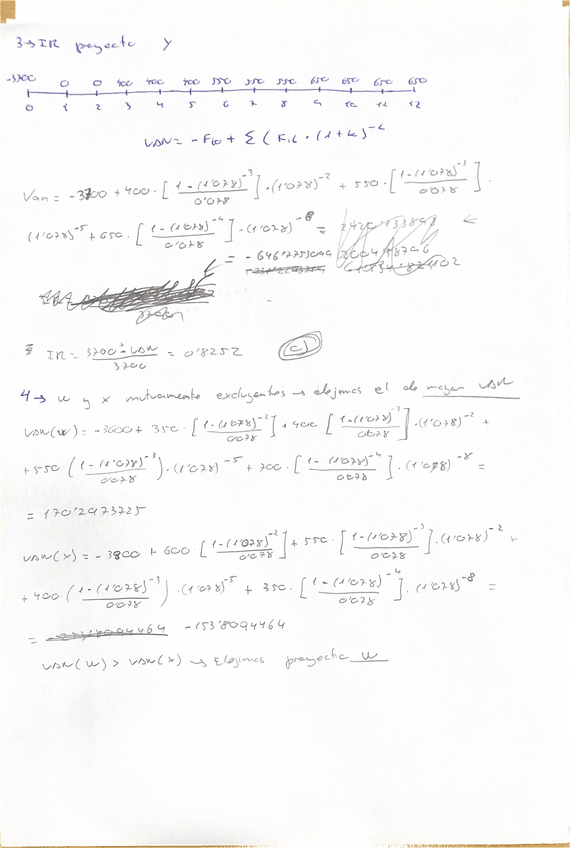 3→ IR proyecto Y
-3700 0 0 400 400 400 550 550 550 650 650 650 650
0 1 2 3 4 5 6 7 8 9 10 11 12
VAN = -Fi0 + Σ (Fit · (1+k)^-t
Van = -3700 + 400 · [ 1-(1'078)^-3 / 0'078 ] · (1'078)^-2 + 550 · [ 1-(1'078)^-3 / 0'078 ] ·
(1'078)^-5 + 650 · [ 1-(1'078)^-4 / 0'078 ] · (1'078)^-8 =
=
IR = 3700 + VAN / 3700 = 0'8252 c)
4→ W y X mutuamente excluyentes → elejimos el de mayor VAN
VAN(W) = -3600 + 350 · [ 1-(1'078)^-2 / 0'078 ] + 400 [ 1-(1'078)^-3 / 0'078 ] · (1'078)^-2 +
+ 550 ( 1-(1'078)^-3 / 0'078 ) · (1'078)^-5 + 700 · [ 1-(1'078)^-4 / 0'078 ] · (1'078)^-8 =
= 170'2973725
VAN(X) = -3800 + 600 · [ 1-(1'078)^-2 / 0'078 ] + 550 · [ 1-(1'078)^-3 / 0'078 ] · (1'078)^-2 +
+ 400 · ( 1-(1'078)^-3 / 0'078 ) · (1'078)^-5 + 350 · [ 1-(1'078)^-4 / 0'078 ] · (1'078)^-8 =
= -153'8094464
VAN(W) > VAN(X) → Elejimos proyecto W